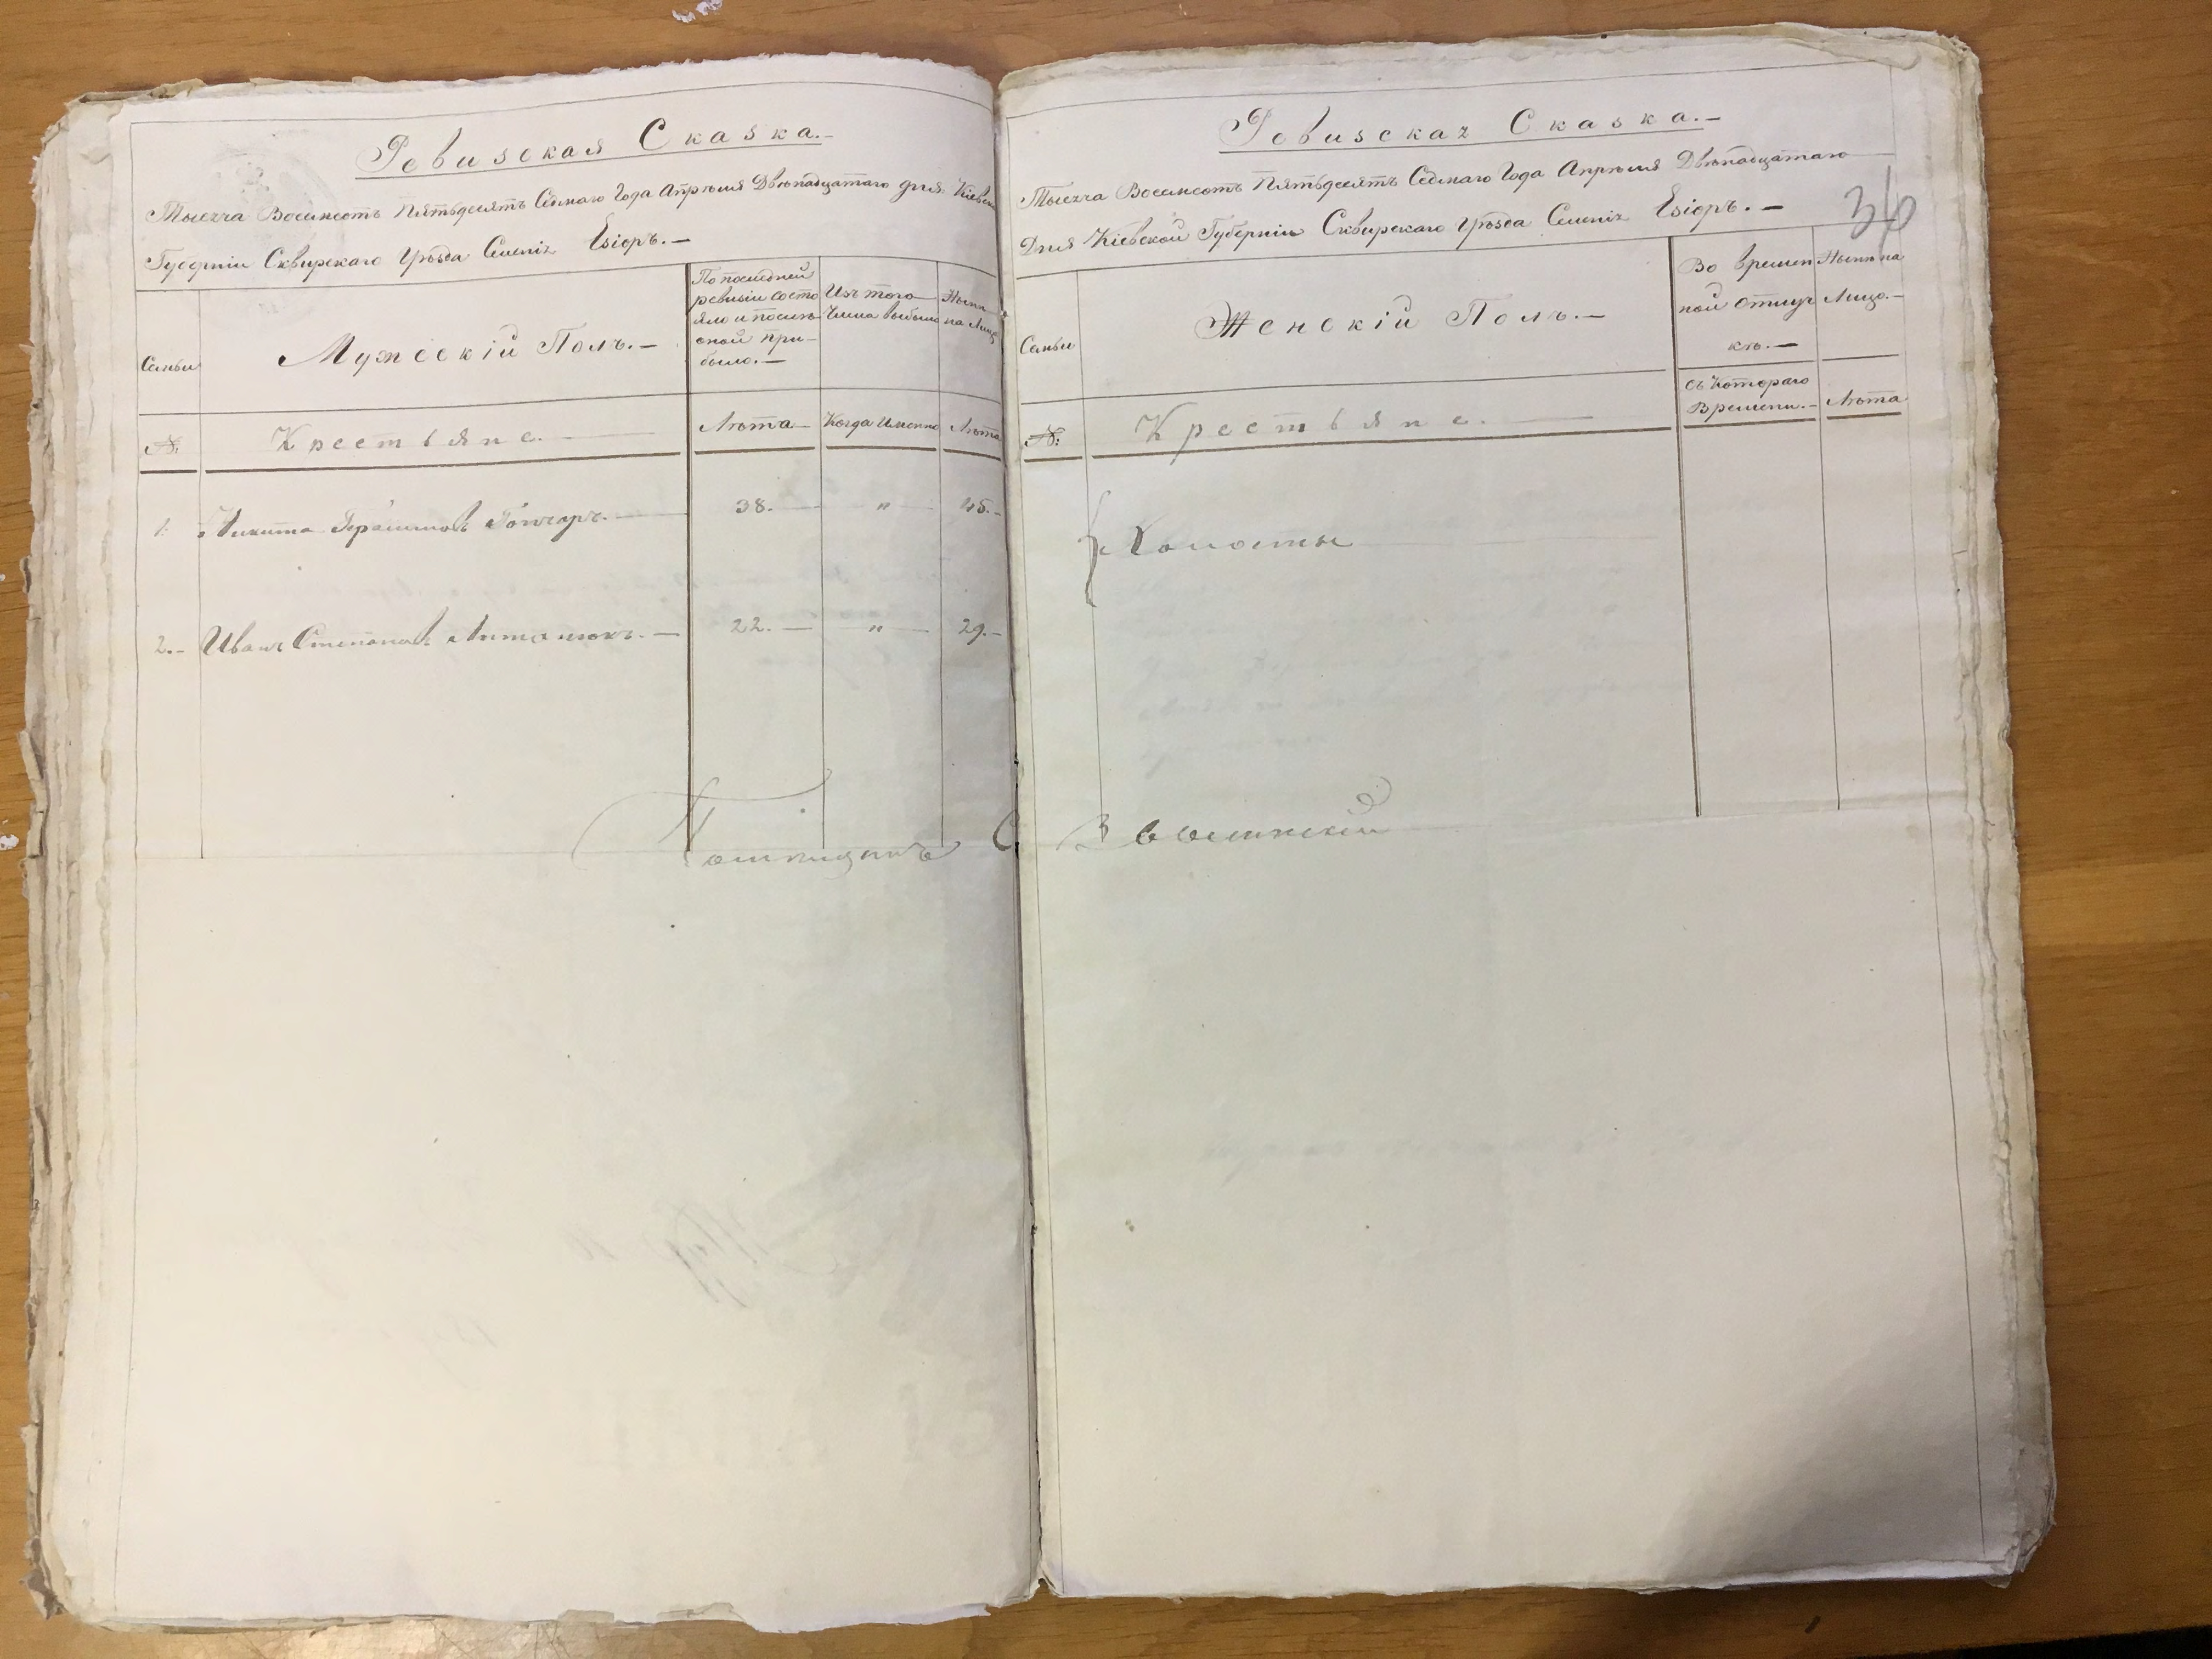 Ревизская Сказка.-
Тысяча Восемсотъ Пятьдесятъ Седмаго Года Апрѣля Двѣнадцатаго дня Кіевской
Губерніи Сквирскаго Уѣзда Селенія Езіоръ.-
Семьи
Мужескій Полъ.-
По последней
ревизіи состо
яло и послѣ
оной при-
было.-
Изъ того
числа выбыло
Нынѣ
на лицо
№:
Крестьяне.
Лѣта
Когда именно
Лѣта
1. Никита Герасимовъ Гончаръ. 38. " 45.-
2.- Иванъ Степановъ 22. " 29.-
Помѣщикъ С
Ревизская Сказка.-
Тысяча Восемсотъ Пятьдесятъ Седмаго Года Апрѣля Двѣнадцатаго
Дня Кіевской Губерніи Сквирскаго Уѣзда Селенія Езіоръ.-
36
Семьи
Женскій Полъ.-
Во времен
ной отлуч
кѣ.-
Нынѣ на
Лицо.-
№:
Крестьяне.
Съ котораго
Времени.-
Лѣта
Холосты